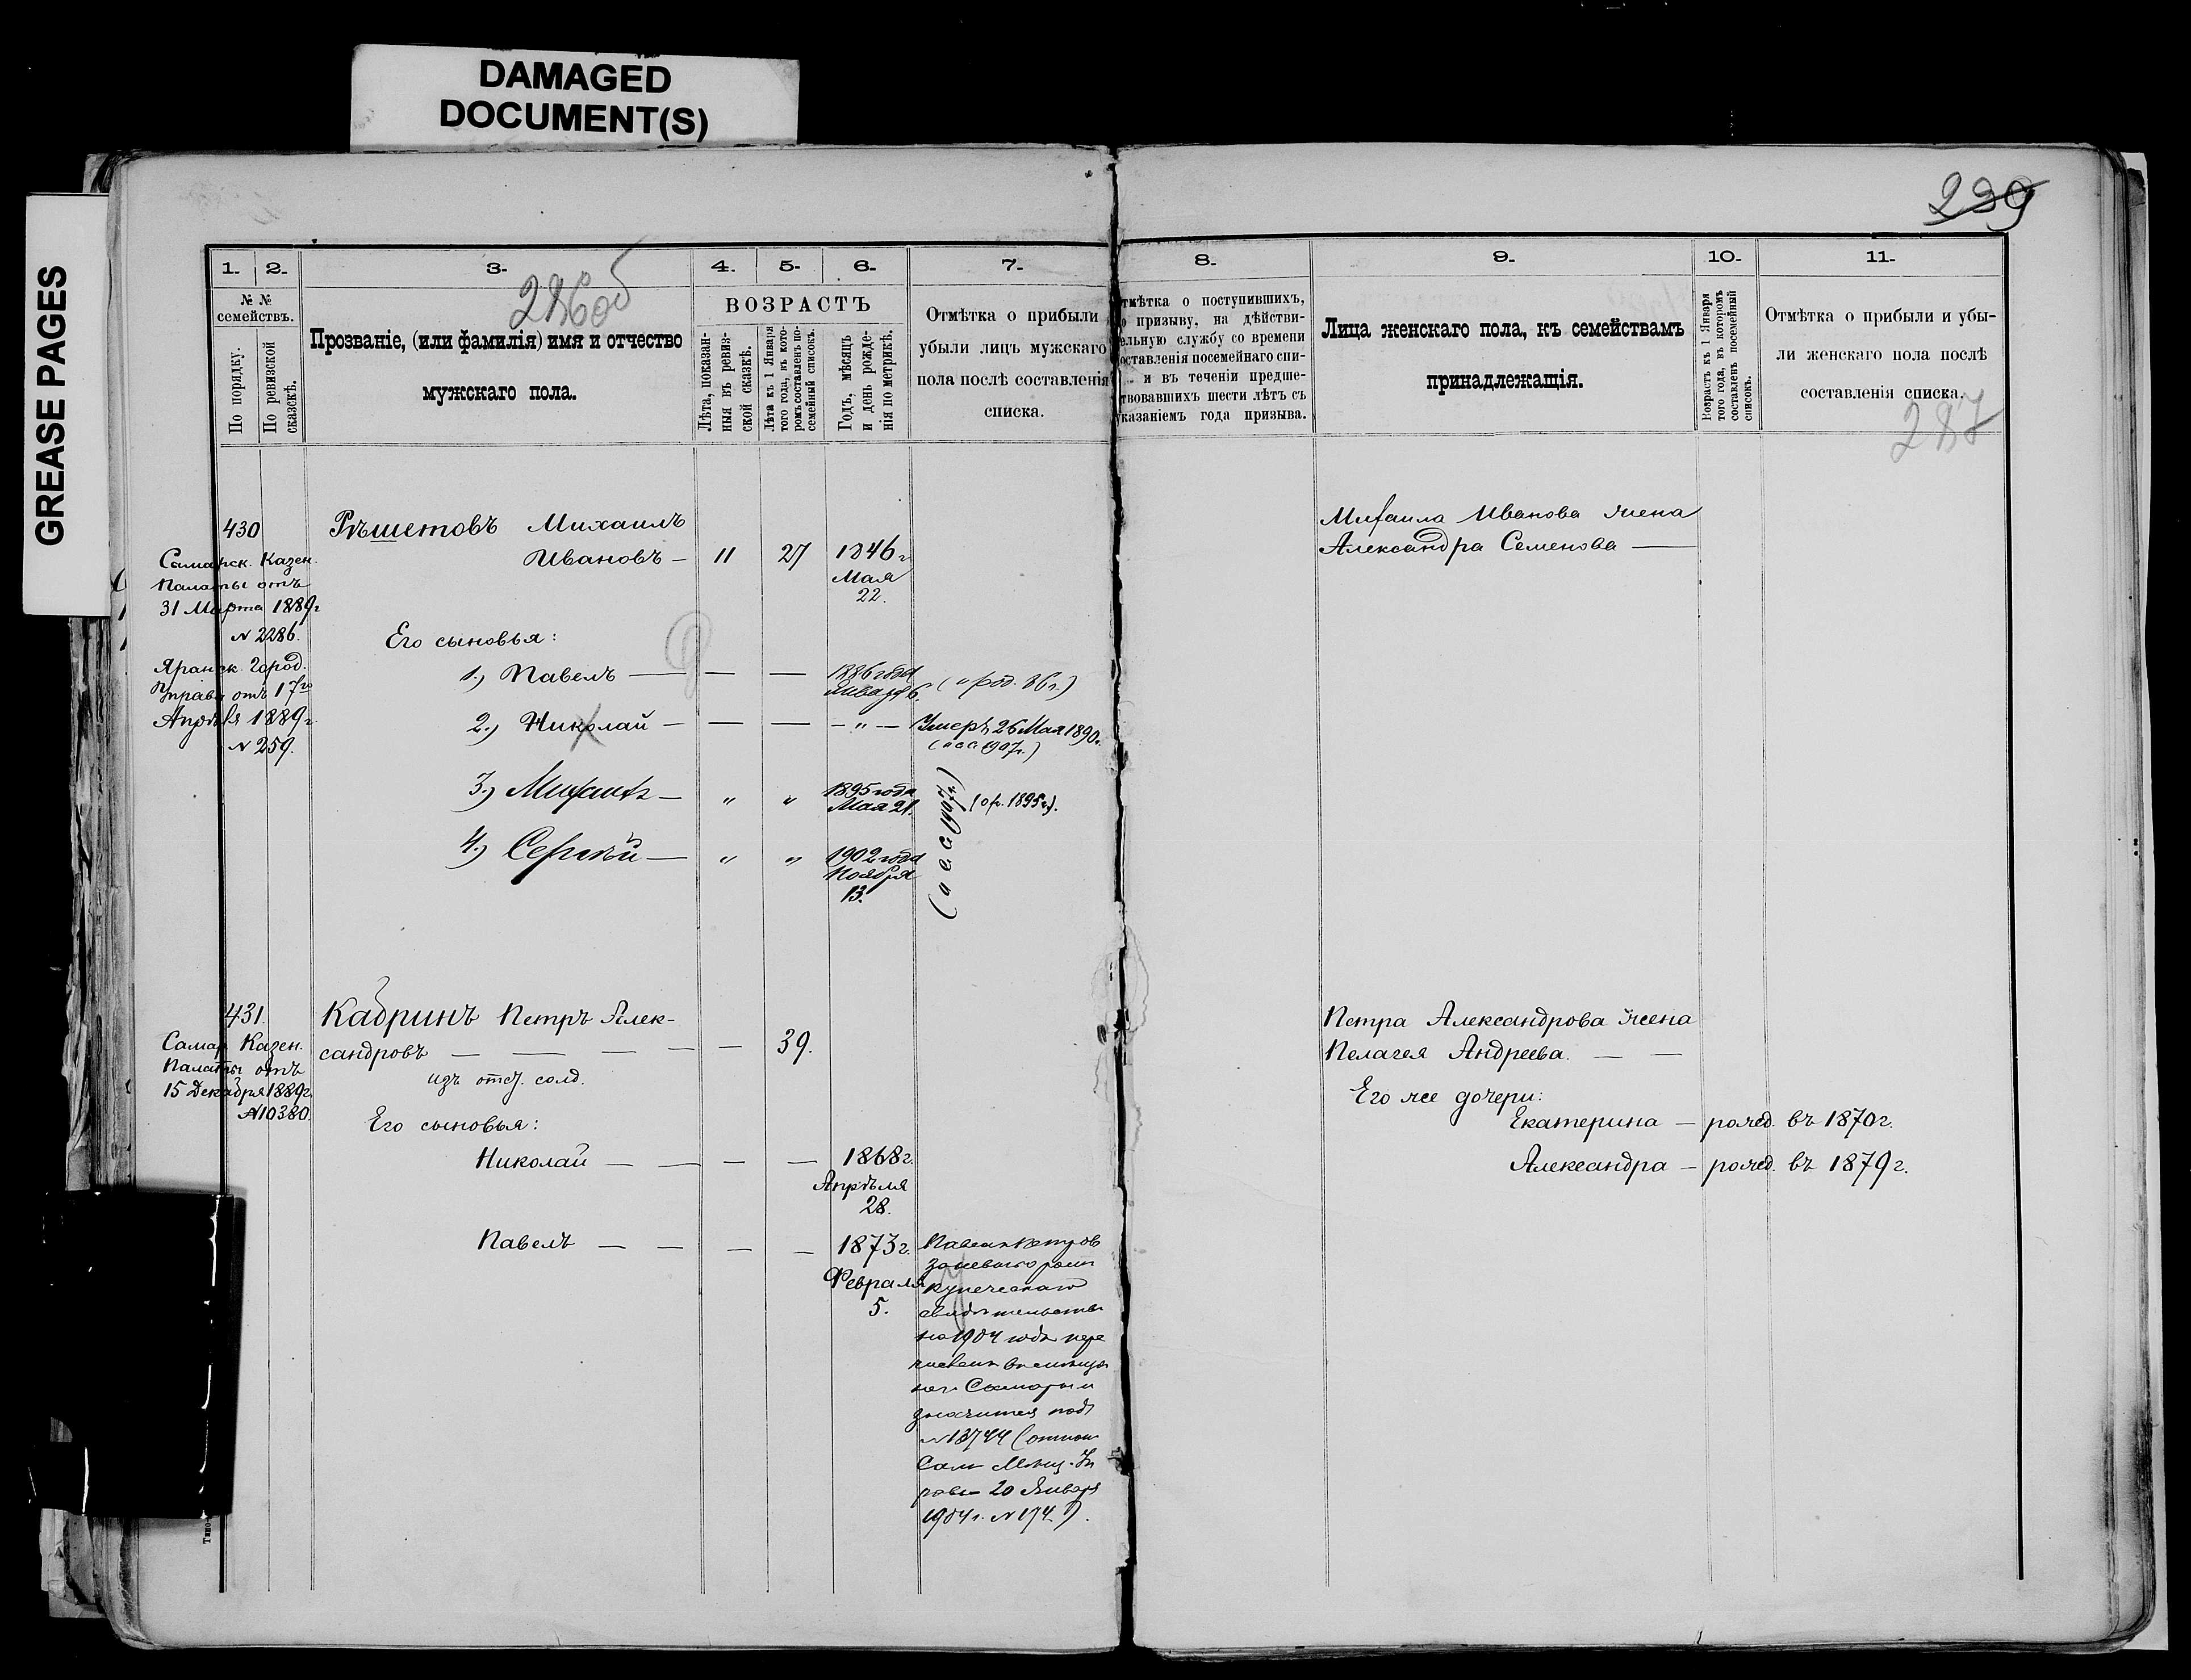 DAMAGED
DOCUMENT(S)
GREASE PAGES
239
1.
2.
3.
4.
5.
6.
7.
8.
9.
10.
11.
286об
287
№ №
семействъ.
По порядку.
По ревизской
сказскѣ.
Прозваніе, (или фамилія) имя и отчество
мужскаго пола.
ВОЗРАСТЪ
Лѣта, показан-
ныя въ ревиз-
ской сказкѣ.
Лѣта къ 1 Января
того года, въ кото-
ромъ составленъ по-
семейный списокъ.
Годъ, мѣсяцъ
и день рожде-
нія по метрикѣ.
Отмѣтка о прибыли
убыли лицъ мужскаго
пола послѣ составленія
списка.
тмѣтка о поступившихъ,
о призыву, на дѣйстви-
ельную службу со времени
оставленія посемейнаго спи-
и въ теченіи предше-
твовавшихъ шести лѣтъ съ
указаніемъ года призыва.
Лица женскаго пола, къ семействамъ
принадлежащія.
Возрастъ къ 1 Января
того года, въ которомъ
составленъ посемейный
списокъ.
Отмѣтка о прибыли и убы-
ли женскаго пола послѣ
составленія списка.
430
Самарск. Казен.
Палаты отъ
31 Марта 1889г
№ 2286.
Яранск. Город.
Управы отъ 17го
Апрѣля 1889г.
№ 259.
Рѣшетовъ Михаилъ
Ивановъ — 11 27 1846г
Мая
22.
Его сыновья:
1.) Павелъ — — — 1886 года
Января 6. (о род. 86г.)
2.) Николай — — — — „ — Умеръ 26 Мая 1890г.
(п с с 1907г.)
3.) Михаилъ — „ „ 1895 года
Мая 21. (о р. 1895г).
4.) Сергѣй — „ „ 1902 года
Ноября
13.
(п с. с 1907г.)
Михаила Иванова жена
Александра Семенова —
431.
Самар Казен.
Палаты отъ
15 Декабря 1889г.
№10380.
Кадринъ Петръ Алек-
сандровъ — — — — — 39.
изъ отст. солд.
Его сыновья:
Николай — — — — 1868г.
Апрѣля
28.
Павелъ — — — — 1873г.
Февраля
5.
Павелъ Петров
купеческаго
свидѣтельства
на 1904 годъ пере
Самары и
значится подъ
№13744
Сам Мѣщ. Уп
равы 20 Января
1904г. №174.).
Петра Александрова жена
Пелагея Андреева. — —
Его же дочери:
Екатерина — рожд. въ 1870г.
Александра — рожд. въ 1879г.